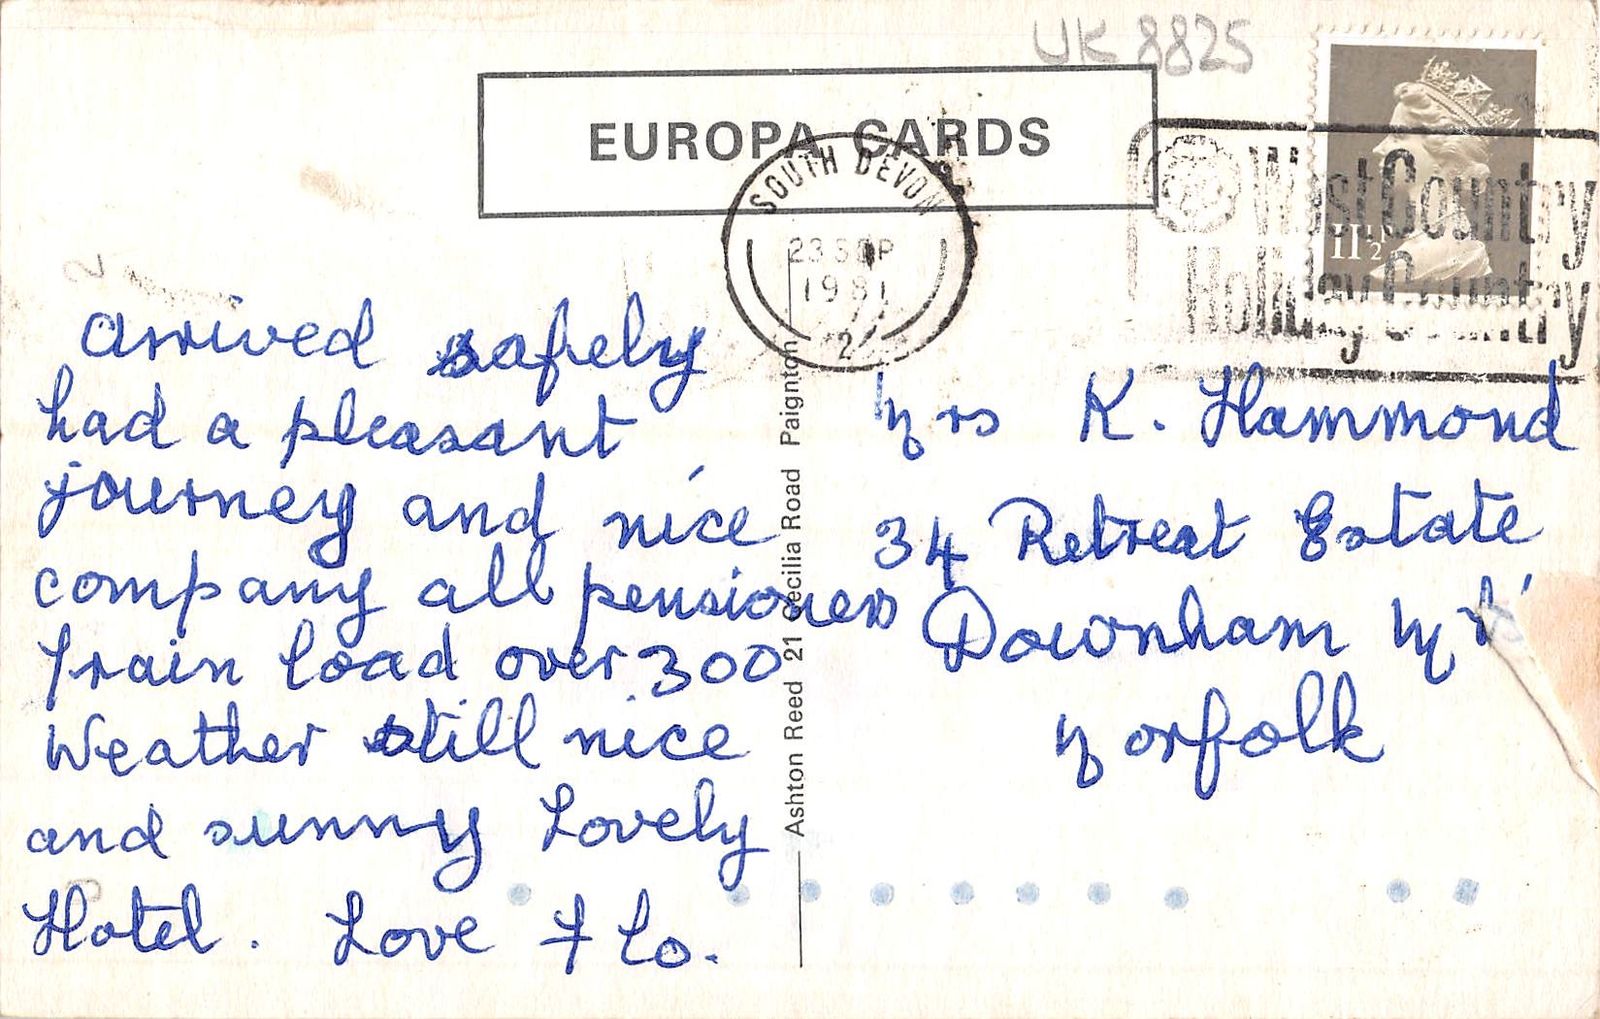 UK 8825
EUROPA CARDS
SOUTH DEVON
23 SEP
1981
2
West Country
Holiday Country
11½
Arrived safely
had a pleasant
journey and nice
company all pensioners
train load over 300
Weather still nice
and sunny Lovely
Hotel. Love Flo.
Ashton Reed 21 Cecilia Road Paignton
Mrs K. Hammond
34 Retreat Estate
Downham Mkt
Norfolk